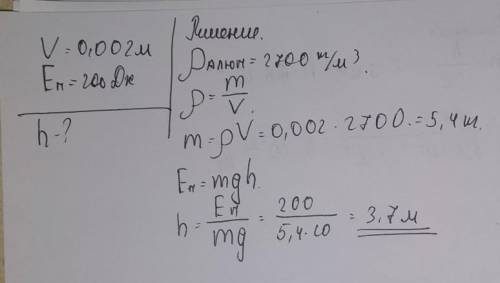 V = 0,002 м
Eп = 200 Дж
h - ?
Решение.
ρалюм = 2700 кг/м³.
ρ = m/V.
m = ρV = 0,002 · 2700. = 5,4 кг.
Eп = mgh.
h = Eп/mg = 200/5,4·10 = 3,7 м